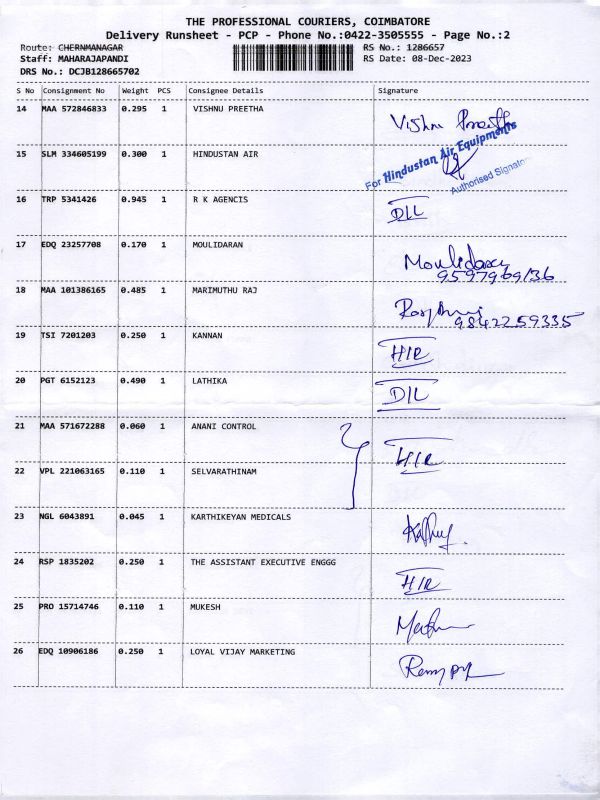 THE PROFESSIONAL COURIERS, COIMBATORE
Delivery Runsheet - PCP - Phone No.:0422-3505555 - Page No.:2
Route: CHERNMANAGAR RS No.: 1286657
Staff: MAHARAJAPANDI RS Date: 08-Dec-2023
DRS No.: DCJB128665702
S No Consignment No Weight PCS Consignee Details Signature
14 MAA 572846833 0.295 1 VISHNU PREETHA Vishnu Preeth
15 SLM 334605199 0.300 1 HINDUSTAN AIR For Hindustan Air Equipments
Authorised Signator
16 TRP 5341426 0.945 1 R K AGENCIS D/L
17 EDQ 23257708 0.170 1 MOULIDARAN Moulidaran
9597969136
18 MAA 101386165 0.485 1 MARIMUTHU RAJ
9842259335
19 TSI 7201203 0.250 1 KANNAN H/R
20 PGT 6152123 0.490 1 LATHIKA D/L
21 MAA 571672288 0.060 1 ANANI CONTROL H/R
22 VPL 221063165 0.110 1 SELVARATHINAM
23 NGL 6043891 0.045 1 KARTHIKEYAN MEDICALS
24 RSP 1835202 0.250 1 THE ASSISTANT EXECUTIVE ENGGG H/R
25 PRO 15714746 0.110 1 MUKESH
26 EDQ 10906186 0.250 1 LOYAL VIJAY MARKETING